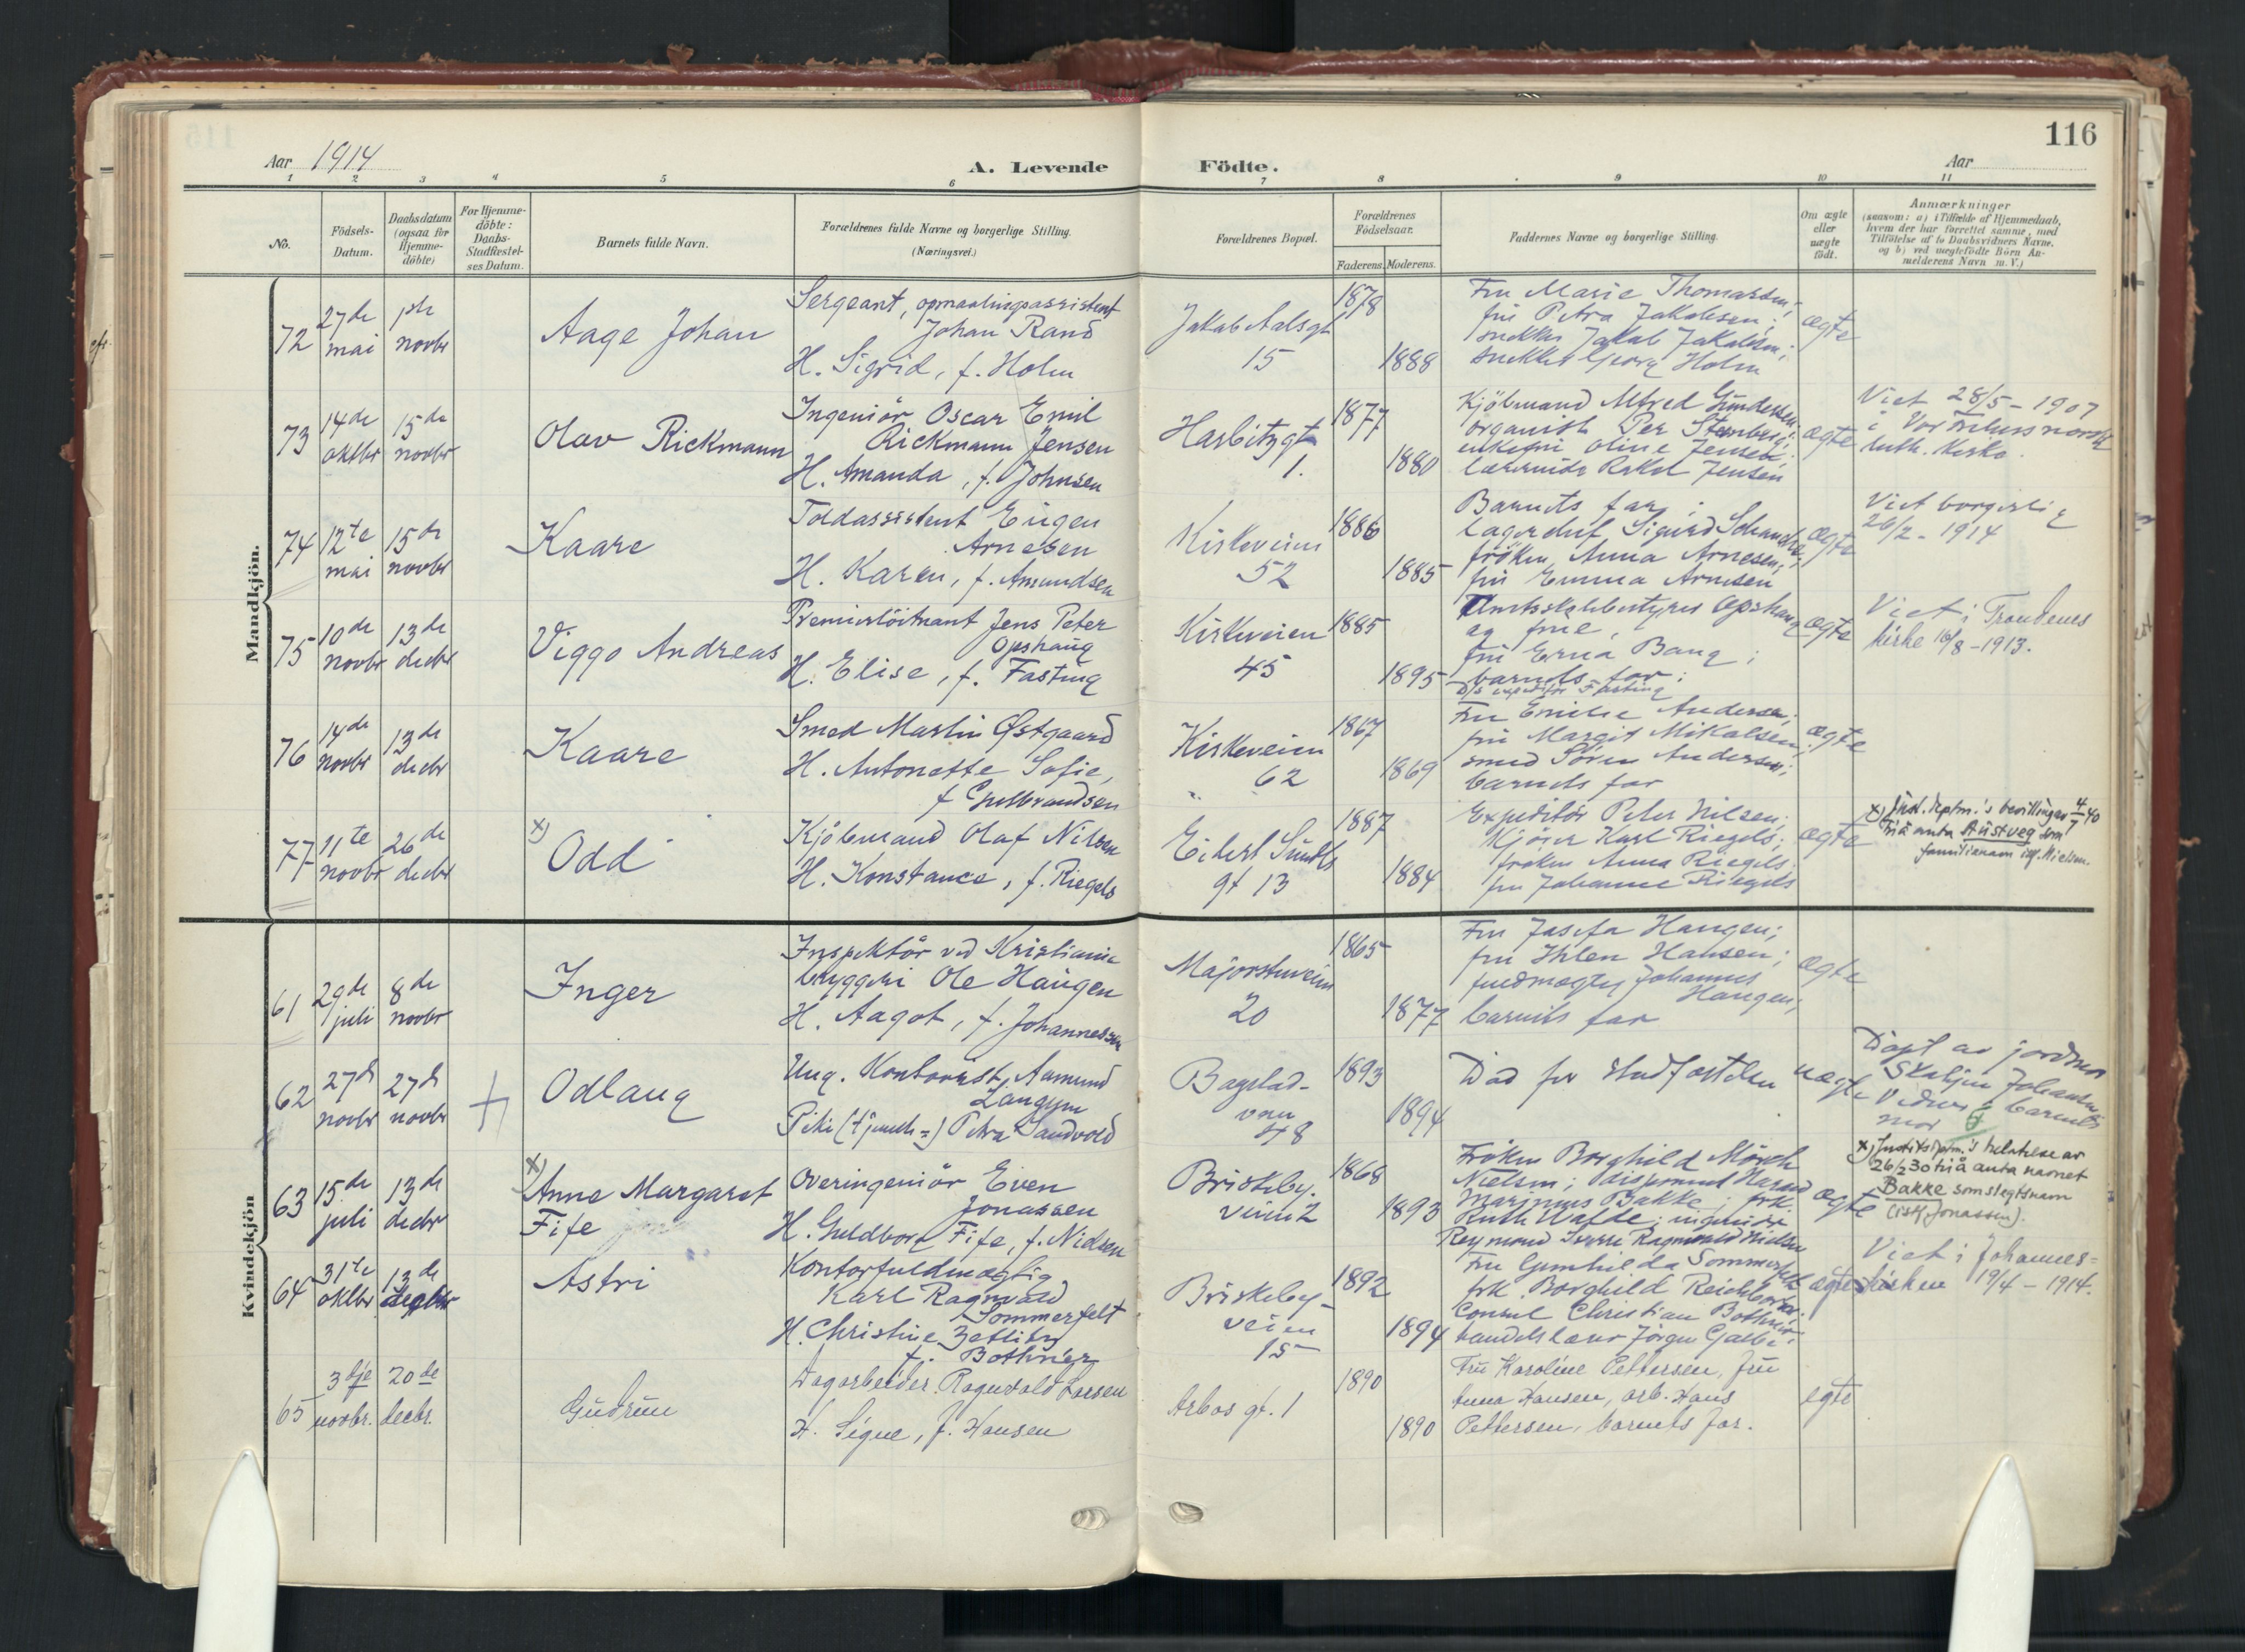 116
Aar 1914
A. Levende Födte.
Aar
1 2 3 4 5 6 7 8 9 10 11
No.
Födsels-
Datum.
Daabsdatum
(ogsaa for
Hjemme-
döbte)
For Hjemme-
döbte:
Daabs-
Stadfæstel-
ses Datum.
Barnets fulde Navn.
Forældrenes fulde Navne og borgerlige Stilling.
(Næringsvei.)
Forældrenes Bopæl.
Forældrenes
Födselsaar.
Faderens. Moderens.
Faddernes Navne og borgerlige Stilling.
Om ægte
eller
uægte
födt.
Anmærkninger
(saasom: a) i Tilfælde af Hjemmedaab,
hvem der har forrettet samme, med
Tilföielse af to Daabsvidners Navne.
og b) ved uægtefödte Börn An-
melderens Navn m. V.)
Mandkjön.
72
27de
mai
1ste
novbr
Aage Johan
Sergeant, opmaalingsassistent
Johan Rand
H. Sigrid, f. Holm
Jakob Aalsgt
15
1878
1888
Fru Marie Thomassen;
fru Petra Jakobsen;
snekker Jakob Jakobsen;
snekker Georg Holm
ægte
73
14de
oktbr
15de
novbr
Olav Rickmann
Ingeniör Oscar Emil
Rickmann Jensen
H. Amanda, f. Johnsen
Harbitzgt
1.
1877
1880
Kjöbmand Alfred Gundersen;
organist Per Steenberg;
enkefru Oline Jensen;
lærerinde Rakel Jensen
ægte
Viet 28/5-1907
i Vor Frelsers norsk
luth. Kirke.
74
12te
mai
15de
novbr
Kaare
Toldassistent Eugen
Arnesen
H. Karen, f. Amundsen
Kirkeveien
52
1886
1885
Barnets far;
lagerchef Sigurd Schanche;
fröken Anna Arnesen;
fru Emma Arnesen
ægte
Viet borgerlig
26/2-1914
75
10de
novbr
13de
decbr
Viggo Andreas
Premierlöitnant Jens Peter
Opshaug
H. Elise, f. Fasting
Kirkeveien
45
1885
1895
Amtsskolebestyrer Opshaug
og frue,
fru Erna Bang;
barnets far;
D/S expeditör Fasting
ægte
Viet i Trondenes
kirke 16/8-1913.
76
14de
novbr
13de
decbr
Kaare
Smed Martin Østgaard
H. Antonette Sofie,
f. Gulbrandsen
Kirkeveien
62
1867
1869
Fru Emilie Andersen;
fru Margit Mikalsen;
smed Sören Andersen;
barnets far
ægte
77
11te
novbr
26de
decbr
x) Odd
Kjöbmand Olaf Nilsen
H. Konstance, f. Riegels
Eilert Sundts
gt 13
1887
1884
Expeditör Peter Nilsen;
Kjörer Karl Riegels;
fröken Anna Riegels;
fru Johanne Riegels
ægte
x) Just. deptm.'s bevilling av 4/7 40
til å anta Austveg som
familienavn istf. Nielsen.
Kvindekjön
61
29de
juli
8de
novbr
Inger
Inspektör ved Kristiania
bryggeri Ole Haugen
H. Aagot, f. Johannessen
Majorstuveien
20
1865
1877
Fru Josefa Haugen;
fru Ihlen Hansen;
fuldmægtig Johannes
Haugen;
barnets far
ægte
62
27de
novbr
27de
novbr
Odlaug
Ung. Kontorist Aamund
Langum
Pike (tjeneste=) Petra Sandvold
Bogstad-
veien
48
1893
1894
Död för stadfæstelsen
uægte
Döpt av jordmor
Johansen
Vidner; barnets
mor
63
15de
juli
13de
decbr
x) Anne Margaret
Fife
Overingeniör Even
Jonassen
H. Guldborg Fife, f. Nielsen
Briskeby.
veien 2
1868
1893
Fröken Borghild Mörch
Nielsen; disponent Harald
Marinius Bakke; frk.
Ruth Wafde; ingeniör
Reymond Sverre Ragnvald Nielsen
ægte
x) Justitsdptm.'s tillatelse av
26/2 30 til å anta navnet
Bakke som slegtsnavn
(istf. Jonassen).
64
31te
oktbr
13de
decbr
Astri
Kontorfuldmægtig
Karl Ragnvald
Sommerfelt
H. Christine Zetlitz,
f. Bothner
Briskeby-
veien
15
1892
1894
Fru Gunhilda Sommerfelt
frk. Borghild Reichborn;
Consul Christian Bothner;
handelslærer Jörgen Galbe
ægte
Viet i Johannes=
kirken 19/4-1914.
65
3dje
novbr.
20de
decbr.
Gudrun
Dagarbeider Ragnvald Larsen
H. Signe, f. Hansen
Arbos gt. 1
1890
1890
Fru Karoline Pettersen, fru
Anna Hansen, arb. Hans
Pettersen, barnets far.
egte